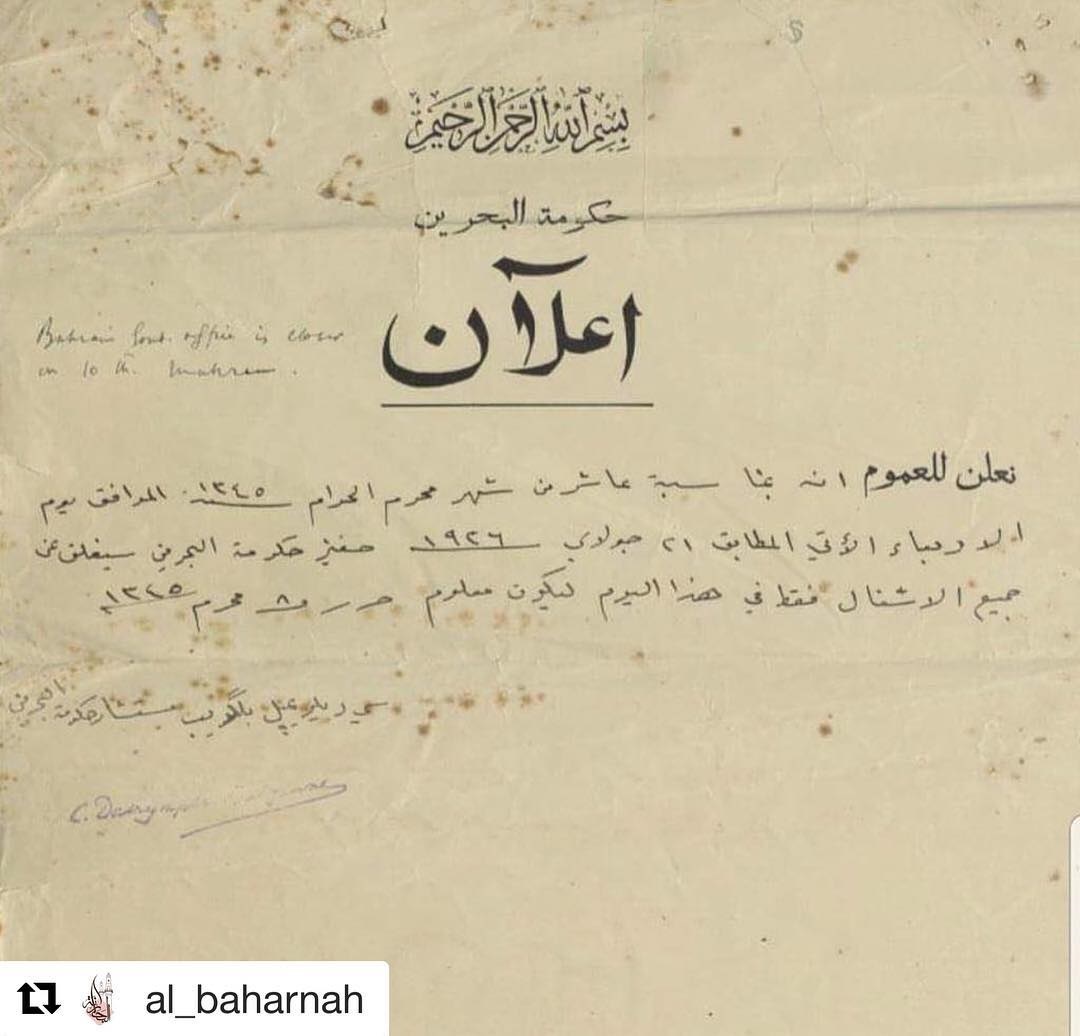 بسم الله الرحمن الرحيم
حكومة البحرين
اعلآن
Bahrain Govt. office is closed
on 10 th. Mahram.
نعلن للعموم انه بمناسبة عاشر من شهر محرم الحرام سنة ١٣٤٥ الموافق يوم
الاربعاء الأتي المطابق ٢١ جولاي ١٩٢٦ حفيز حكومة البحرين سيغلق عن
جميع الاشغال فقط في هذا اليوم ليكون معلوم حرر ٨ محرم ١٣٤٥
سي دلريمبل بلگريف مستشار حكومة البحرين
C. Dalrymple Belgrave
al_baharnah